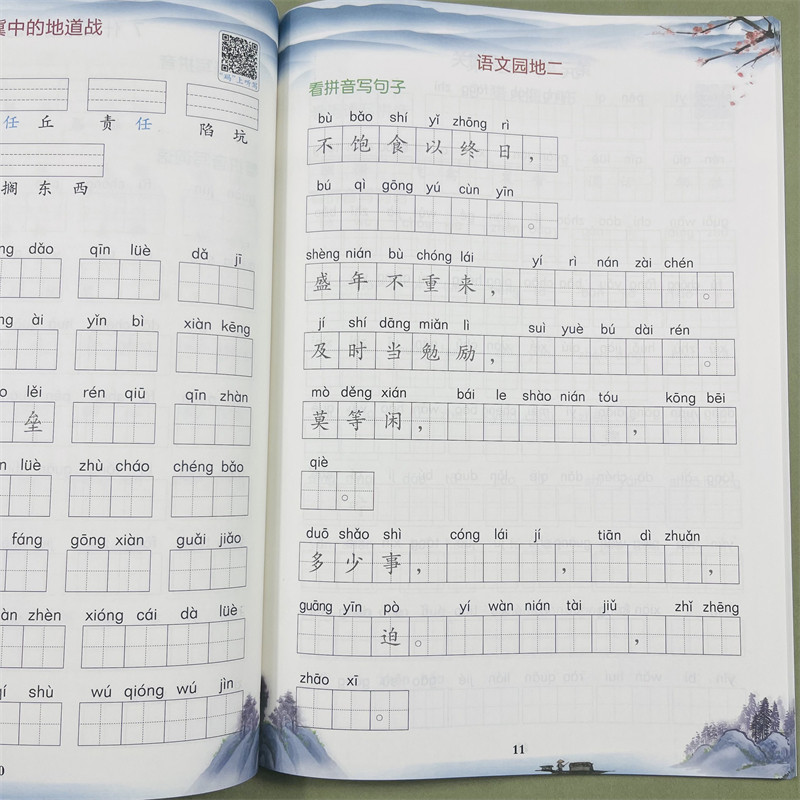 冀中的地道战
"码"上听写
任 丘 责 任 陷 坑
搁 东 西
dǎo qīn lüè dǎ jī
ài yǐn bì xiàn kēng
lěi rén qiū qīn zhàn
垒
lüè zhù cháo chéng bǎo
fáng gōng xiàn guǎi jiǎo
zhèn xióng cái dà lüè
shù wú qióng wú jìn
语文园地二
看拼音写句子
bù bǎo shí yǐ zhōng rì
不 饱 食 以 终 日 ,
bú qì gōng yú cùn yīn
。
shèng nián bù chóng lái yí rì nán zài chén
盛 年 不 重 来 , 。
jí shí dāng miǎn lì suì yuè bú dài rén
及 时 当 勉 励 , 。
mò děng xián bái le shào nián tóu kōng bēi
莫 等 闲 , ,
qiè
。
duō shǎo shì cóng lái jí tiān dì zhuǎn
多 少 事 , , ,
guāng yīn pò yí wàn nián tài jiǔ zhǐ zhēng
迫 。 ,
zhāo xī
。
11